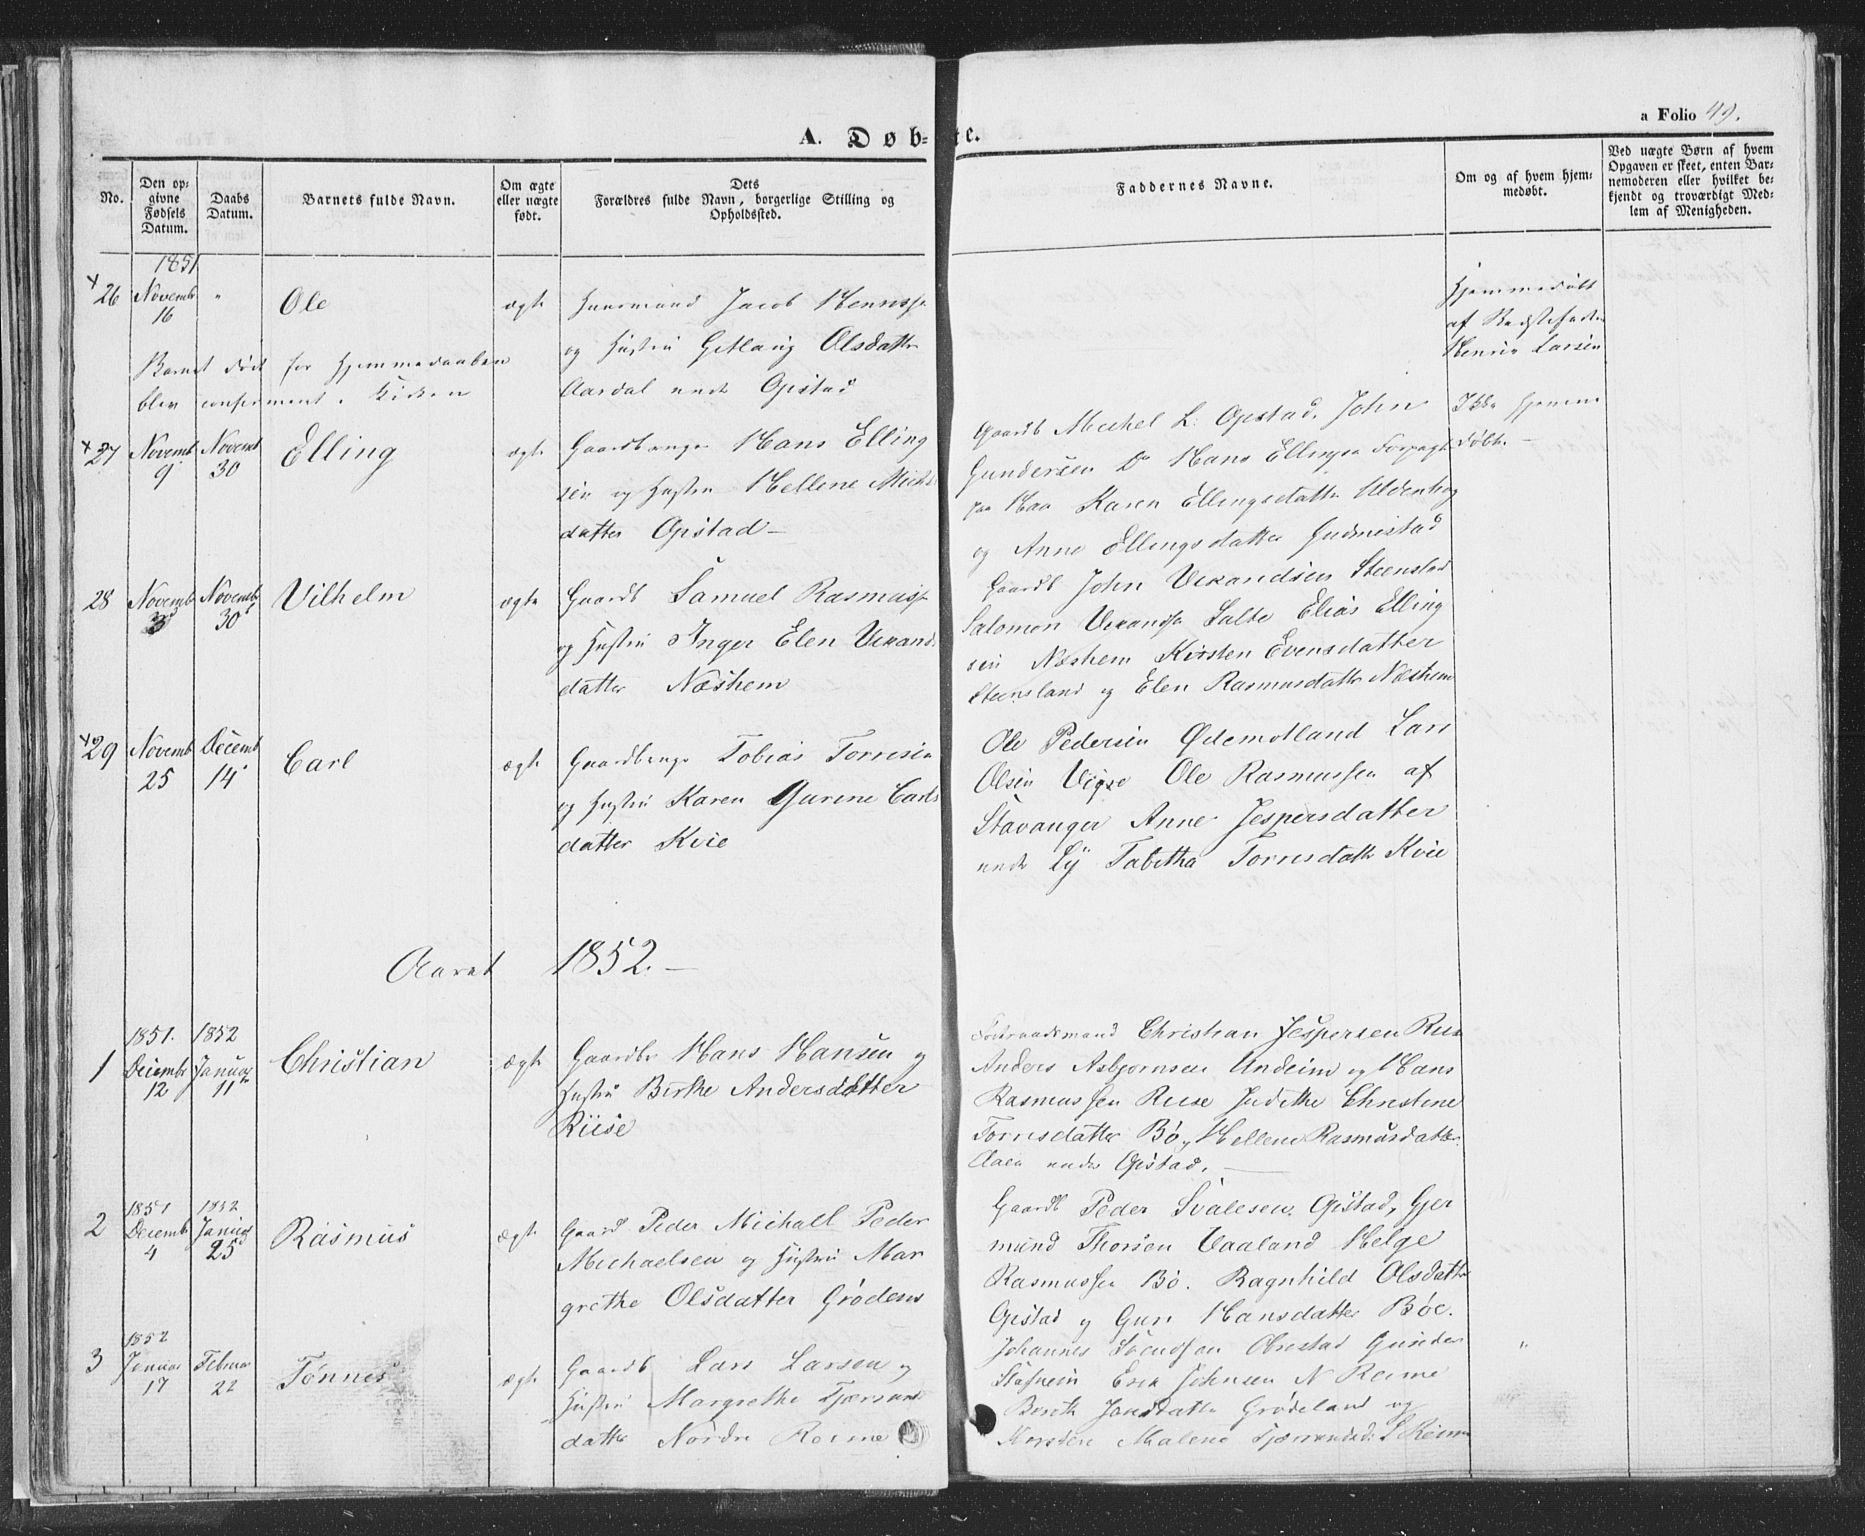 a Folio 49.
A. Døb-te.
No.
Den op-
givne
Fødsels
Datum.
Daabs
Datum.
Barnets fulde Navn.
Om ægte
eller uægte
født.
Dets
Forældres fulde Navn, borgerlige Stilling og
Opholdssted.
Faddernes Navne.
Om og af hvem hjem-
medøbt.
Ved uægte Børn af hvem
Opgaven er skeet, enten Bar-
nemoderen eller hvilket be-
kjendt og troværdigt Med-
lem af Menigheden.
1851
26 Novembr 16 " Ole ægte Huusmand Jacob
og Hustru Olsdatter
Aardal unde Opstad
Barnet død før Hjemmedaaben
blev i Kirken
Hjemmedøbt
af
Larsen
27 Novemb 9 Novemb 30 Elling ægte Gaardbruger Hans Elling
sen og Hustru Hellene
datter Opstad -
Gaardb L: Opstad, John
Gundersen Do Hans
paa Haa Karen Ellingsdatter
og Anne Ellingsdatter
Ikke hjemme
døbt. -
28 Novemb 3 Novemb 30 Vilhelm ægte Gaardb Samuel Rasmuss
og Hustru Inger Elen
datter Næshem
Gaardb John
Salomon Salte Elias Elling
sen Næshem Kirsten Evensdatter
Steensland og Elen Rasmusdatter Næshem
29 Novemb 25 Decemb 14 Carl ægte Gaardbruge Tobias Torresen
og Hustru Karen Gurine Carls
datter Kvie
Ole Pedersen Ødemotland Lars
Olsen Vigre Ole Rasmussen af
Stavanger Anne Jespersdatter
unde Lÿ Tabitha Torresdatter Kvie
Aaret 1852. -
1 1851. Decembr 12 1852 Januar 11 Christian ægte Gaardbr Hans Hansen og
Hustru Birthe Andersdatter
Riise
Christian Jespersen
Anders Asbjørnsen Undeim og Hans
Rasmussen Riise Judithe Christine
Torresdatter Bø, Hellene Rasmusdatter
Aaen unde Opstad. -
2 1851 Decembr 4 1852 Januar 25 Rasmus ægte Gaard Peder Michael Peder
Michaelsen og Hustru Mar
grethe Olsdatter Grødem
Gaardb Peder Svalesen Opstad, Gjer
mund Thorsen Vaaland Helge
Rasmussen Bø. Ragnhild Olsdatter
Opstad og Guri Hansdatter Bøe.
3 1852 Januar 17 Februar 22 Tønnes ægte Gaardb Lars Larsen og
Hustru Margrethe
datter Nordre Reime
Johannes Svendsen Obrestad Gunder
Erik Johnsen N Reime
Bereth Grødeland og
Malene S Reime
"